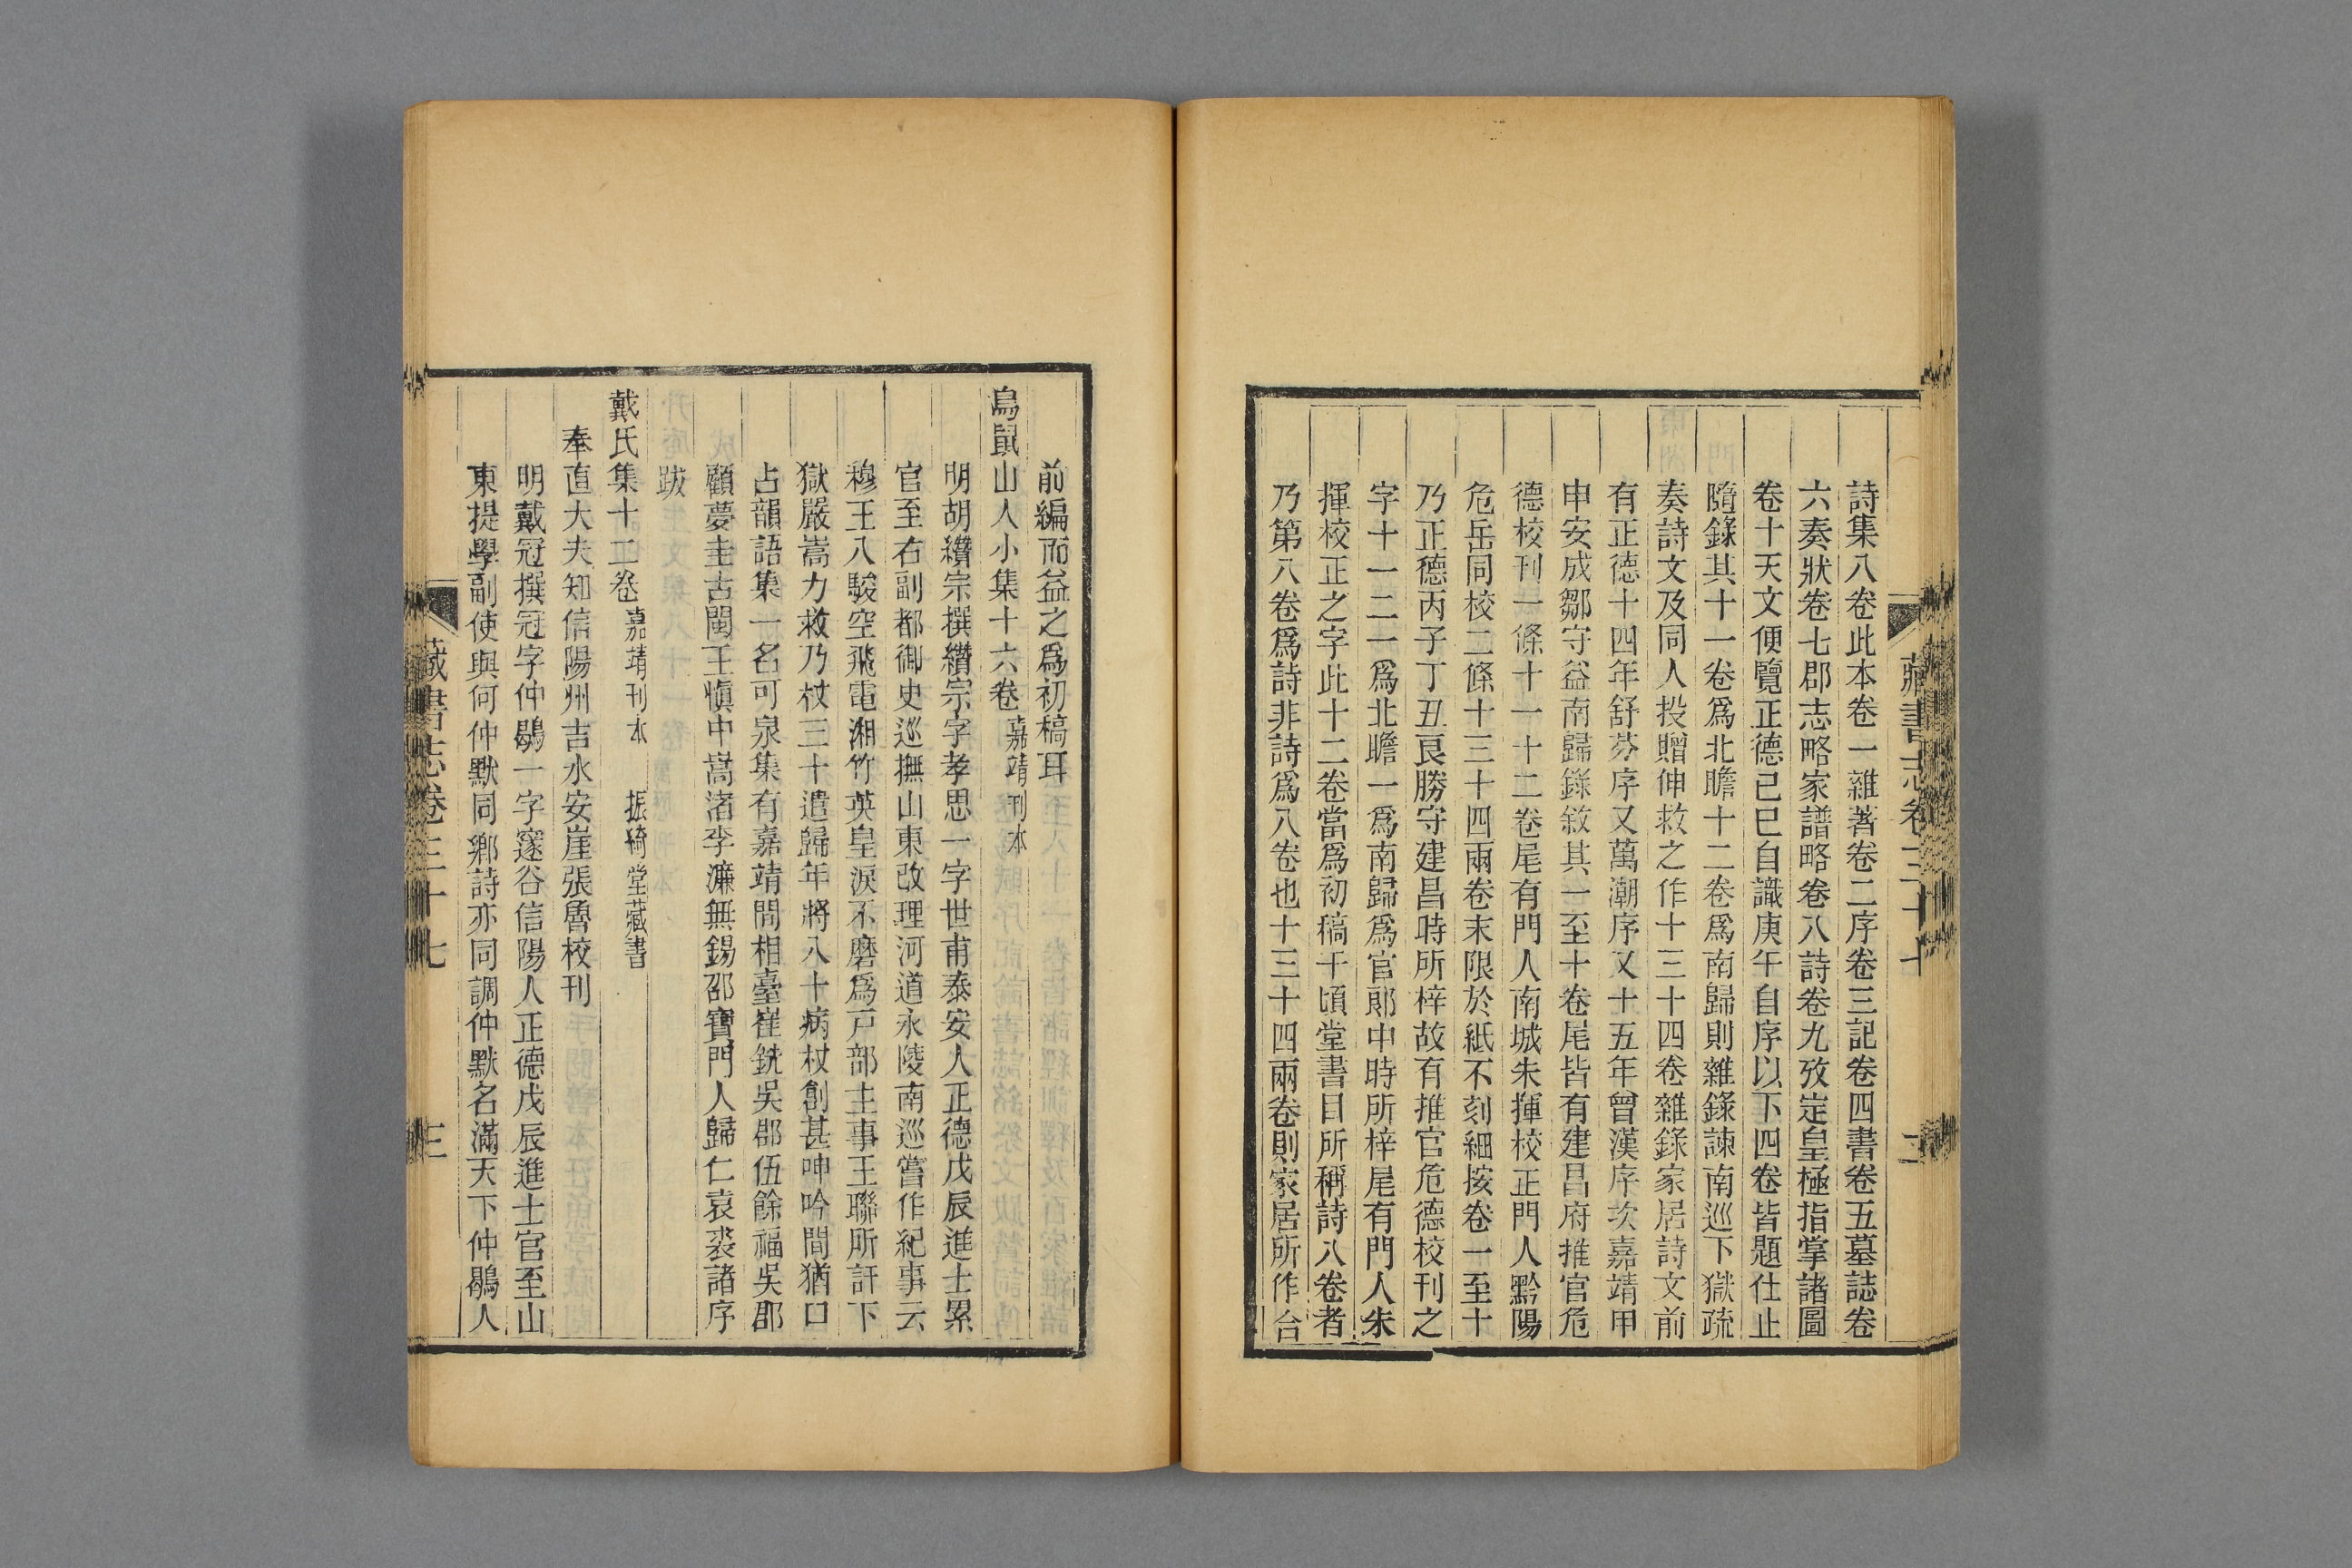 藏書志卷三十七
二
詩集八卷此本卷一雜著卷二序卷三記卷四書卷五墓誌卷
六奏狀卷七郡志略家譜略卷八詩卷九攷定皇極指掌諸圖
卷十天文便覽正德己巳自識庚午自序以下四卷皆題仕止
隨錄其十一卷爲北瞻十二卷爲南歸則雜錄諫南巡下獄疏
奏詩文及同人投贈伸救之作十三十四卷雜錄家居詩文前
有正德十四年舒芬序又萬潮序又十五年曾漢序次嘉靖甲
申安成鄒守益南歸錄敘其一至十卷尾皆有建昌府推官危
德校刊一條十一十二卷尾有門人南城朱揮校正門人黔陽
危岳同校二條十三十四兩卷末限於紙不刻細按卷一至十
乃正德丙子丁丑良勝守建昌時所梓故有推官危德校刊之
字十一二一爲北瞻一爲南歸爲官郎中時所梓尾有門人朱
揮校正之字此十二卷當爲初稿千頃堂書目所稱詩八卷者
乃第八卷爲詩非詩爲八卷也十三十四兩卷則家居所作合
前編而益之爲初稿耳
鳥鼠山人小集十六卷 嘉靖刊本
明胡纘宗撰纘宗字孝思一字世甫泰安人正德戊辰進士累
官至右副都御史巡撫山東改理河道永陵南巡嘗作紀事云
穆王八駿空飛電湘竹英皇淚不磨爲戸部主事王聯所訐下
獄嚴嵩力救乃杖三十遣歸年將八十病杖創甚呻吟間猶口
占韻語集一名可泉集有嘉靖間相臺崔銑吳郡伍餘福吳郡
顧夢圭古閩王愼中嵩渚李濂無錫邵寶門人歸仁袁袠諸序
跋
戴氏集十二卷 嘉靖刊本 振綺堂藏書
奉直大夫知信陽州吉水安崖張魯校刊
明戴冠撰冠字仲鶡一字邃谷信陽人正德戊辰進士官至山
東提學副使與何仲默同鄉詩亦同調仲默名滿天下仲鶡人
藏書志卷三十七
三